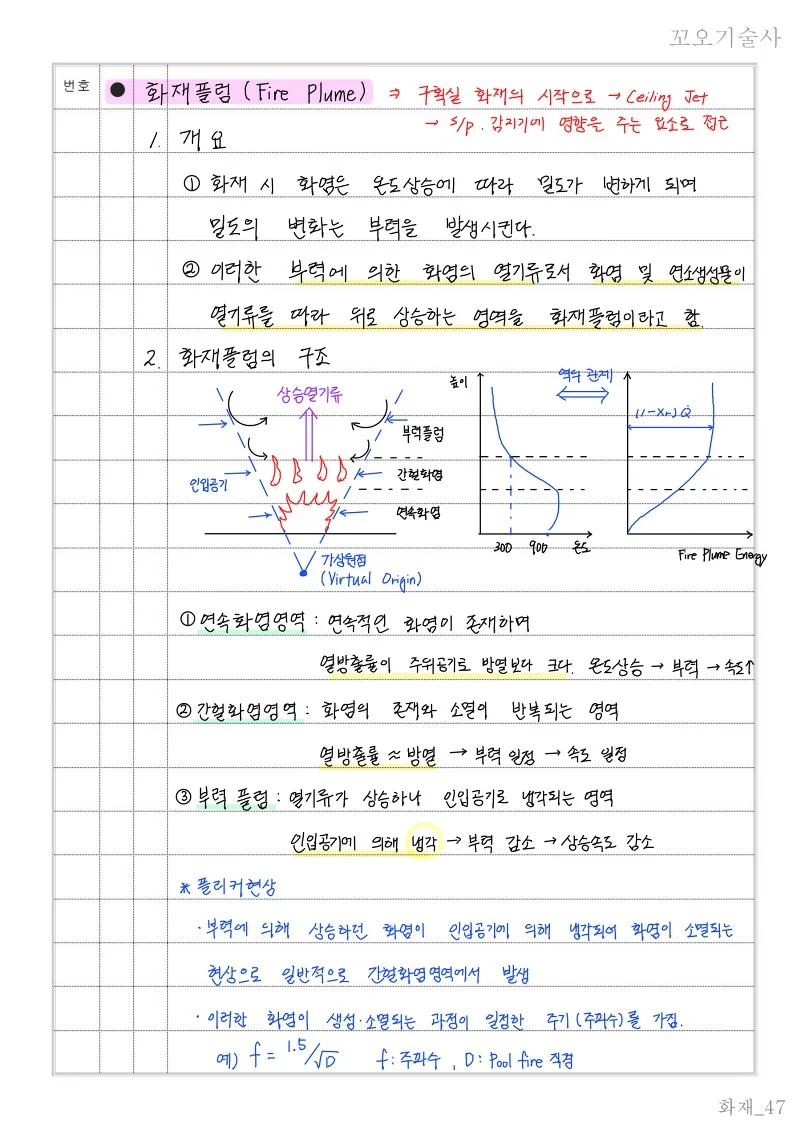 꼬오기술사
번호
● 화재플럼 (Fire Plume) ⇒ 구획실 화재의 시작으로 → Ceiling Jet
→ S/p. 감지기에 영향을 주는 요소로 접근
1. 개요
① 화재 시 화염은 온도상승에 따라 밀도가 변하게 되며
밀도의 변화는 부력을 발생시킨다.
② 이러한 부력에 의한 화염의 열기류로서 화염 및 연소생성물이
열기류를 따라 위로 상승하는 영역을 화재플럼이라고 함.
2. 화재플럼의 구조
상승열기류
부력플럼
간헐화염
연속화염
인입공기
가상원점
(Virtual Origin)
높이
300 900 온도
역의 관계
(1-Xr)Q̇
Fire Plume Energy
① 연속화염영역 : 연속적인 화염이 존재하며
열방출률이 주위공기로 방열보다 크다. 온도상승 → 부력 → 속도↑
② 간헐화염영역 : 화염의 존재와 소멸이 반복되는 영역
열방출률 ≈ 방열 → 부력 일정 → 속도 일정
③ 부력 플럼 : 열기류가 상승하나 인입공기로 냉각되는 영역
인입공기에 의해 냉각 → 부력 감소 → 상승속도 감소
* 플리커현상
· 부력에 의해 상승하던 화염이 인입공기에 의해 냉각되어 화염이 소멸되는
현상으로 일반적으로 간헐화염영역에서 발생
· 이러한 화염이 생성·소멸되는 과정이 일정한 주기(주파수)를 가짐.
예) f = 1.5/√D f : 주파수 , D : Pool fire 직경
화재_47